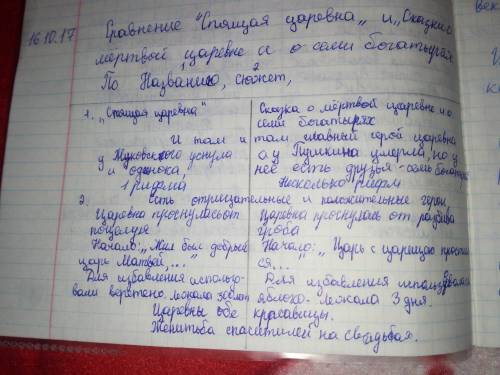 16.10.17
Сравнение "Спящая царевна" и "Сказки о
мёртвой царевне и о семи богатырях
По Названию, сюжет,
1 2
1. "Спящая царевна"
Сказка о мёртвой царевне и о
семи богатырях
И там и там главный герой царевна
у Жуковского уснула
а у Пушкина умерла, но у
и одинока.
неё есть друзья - семь богатырей
1 рифма
Несколько рифм
2. есть отрицательные и положительные герои
Царевна проснулась от
поцелуя
Царевна проснулась от разбива
гроба
Начало: "Жил был добрый
царь Матвей,..."
Начало: "Царь с царицею простил
ся..."
Для избавления использо-
вали веретено. Лежала 300 лет
Для избавления использовали
яблоко. Лежала 3 дня.
Царевны обе красавицы.
Женитьба спасителей на свадьбах.
век